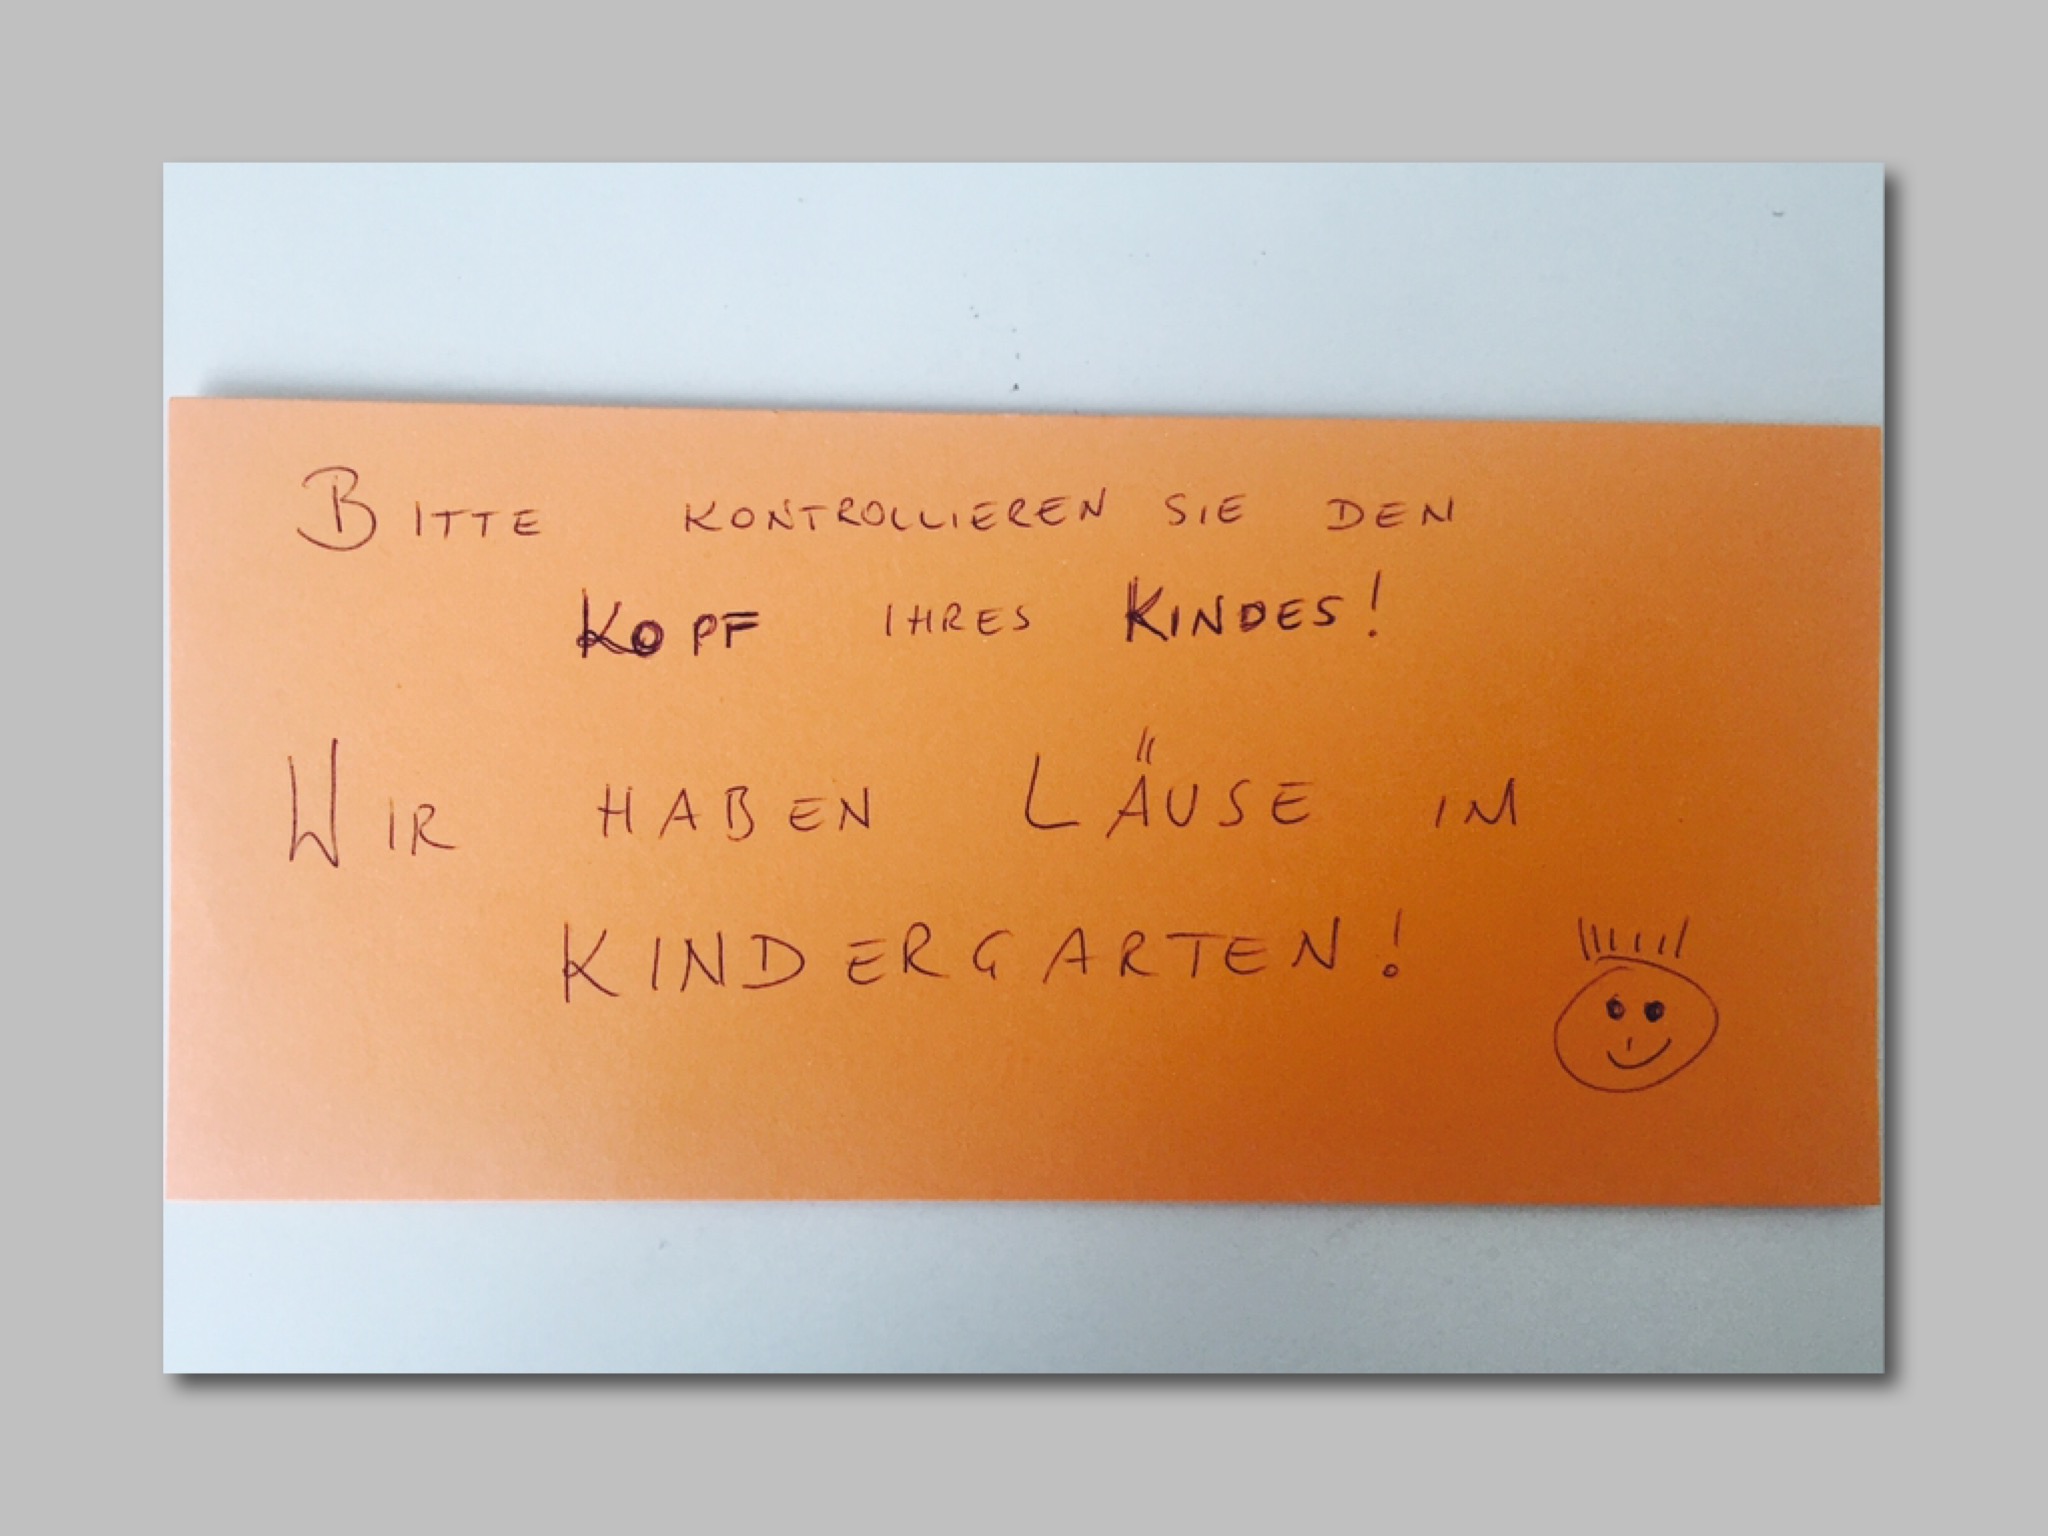 BITTE KONTROLLIEREN SIE DEN
KOPF IHRES KINDES!
WIR HABEN LÄUSE IM
KINDERGARTEN!